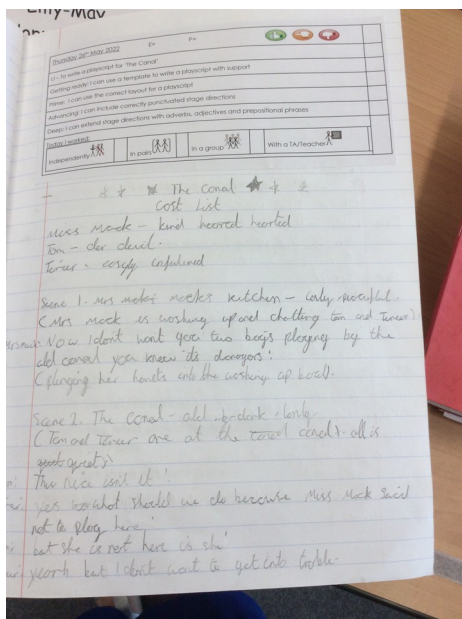 Lilly-Mav
Thursday 26th May 2022
E= P=
LI - to write a playscript for 'The Canal'
Getting ready: I can use a template to write a playscript with support
I can use the correct layout for a playscript
Advancing: I can include correctly punctuated stage directions
Deep: I can extend stage directions with adverbs, adjectives and prepositional phrases
Today I worked:
Independently
In pairs
In a group
With a TA/Teacher
The Canal
Cost List
Miss Mock - kind hearted
Tom - dar devil.
Tenser -
Scene 1. Mrs kitchen -
(Mrs mock is woshing up and chatting tom and Tenser).
Now I don't wont you two boys playing by the
old canal you know it's
(plunging her hands into the woshing up bowl).
Scene 2. The Conal - old
(Tom and Tenser are at the canal) - all is
quiet
This nice isn't it!
yes what should we do because Miss Mock said
not to play here!
but she is not here is she'
yearh but I don't want to get into